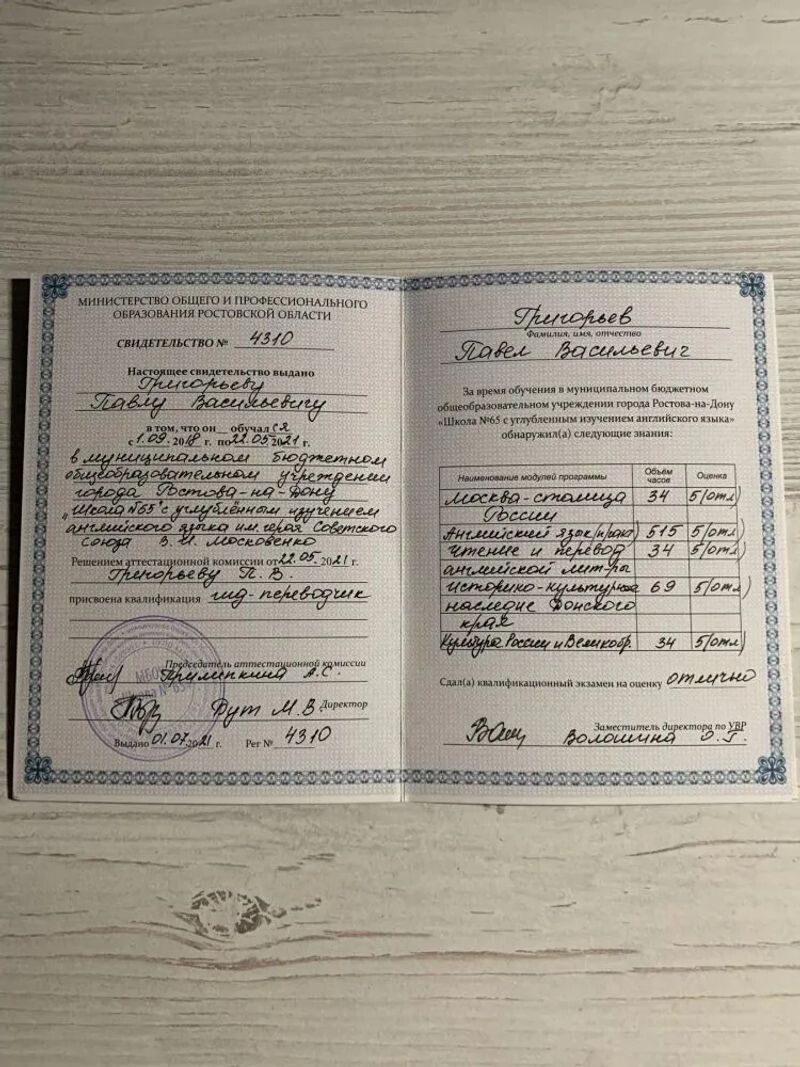 МИНИСТЕРСТВО ОБЩЕГО И ПРОФЕССИОНАЛЬНОГО
ОБРАЗОВАНИЯ РОСТОВСКОЙ ОБЛАСТИ
СВИДЕТЕЛЬСТВО № 4310
Настоящее свидетельство выдано
Григорьеву
Павлу Васильевичу
в том, что он обучался
с 1.09.2018 г. по 22.05.2021 г.
в муниципальном бюджетном
общеобразовательном учреждении
города Ростова-на-Дону
„Школа №65 с углублённым изучением
английского языка им. героя Советского
Союза В. И. Московенко
Решением аттестационной комиссии от 22.05.2021 г.
Григорьеву П. В.
присвоена квалификация гид-переводчик
Председатель аттестационной комиссии
Прилипкина А.С.
Директор
Рут М.В.
Выдано 01.07.2021 г. Рег № 4310
МБОУ
Школа № 65
Григорьев
Фамилия, имя, отчество
Павел Васильевич
За время обучения в муниципальном бюджетном
общеобразовательном учреждении города Ростова-на-Дону
«Школа №65 с углубленным изучением английского языка»
обнаружил(а) следующие знания:
Наименование модулей программы Объём часов Оценка
Москва-столица 34 5/отл)
России
Английский язык (практ) 515 5/отл)
Чтение и перевод 34 5/отл)
английской лит-ры
Историко-культурное 69 5/отл)
наследие Донского
края
Культура России и Великобр. 34 5/отл)
Сдал(а) квалификационный экзамен на оценку отлично
Заместитель директора по УВР
Волошина О.Г.